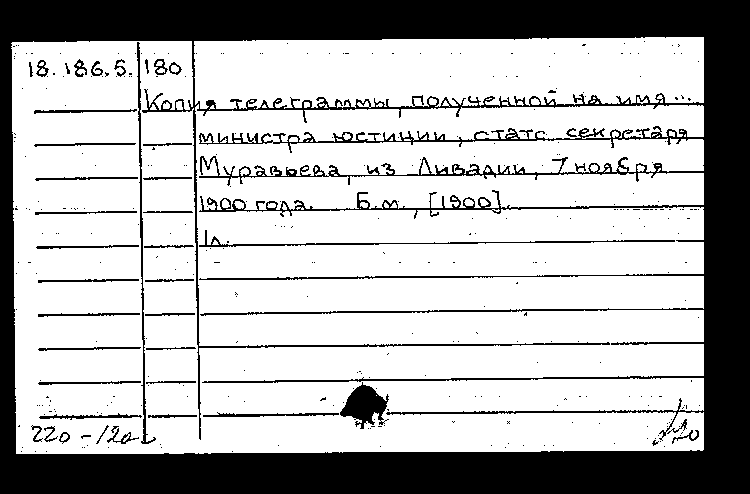 18.186.5. 180
Копия телеграммы, полученной на имя...
министра юстиции, статс секретаря
Муравьева, из Ливадии, 7 ноября
1900 года. Б.м., [1900].
1л.
220-120